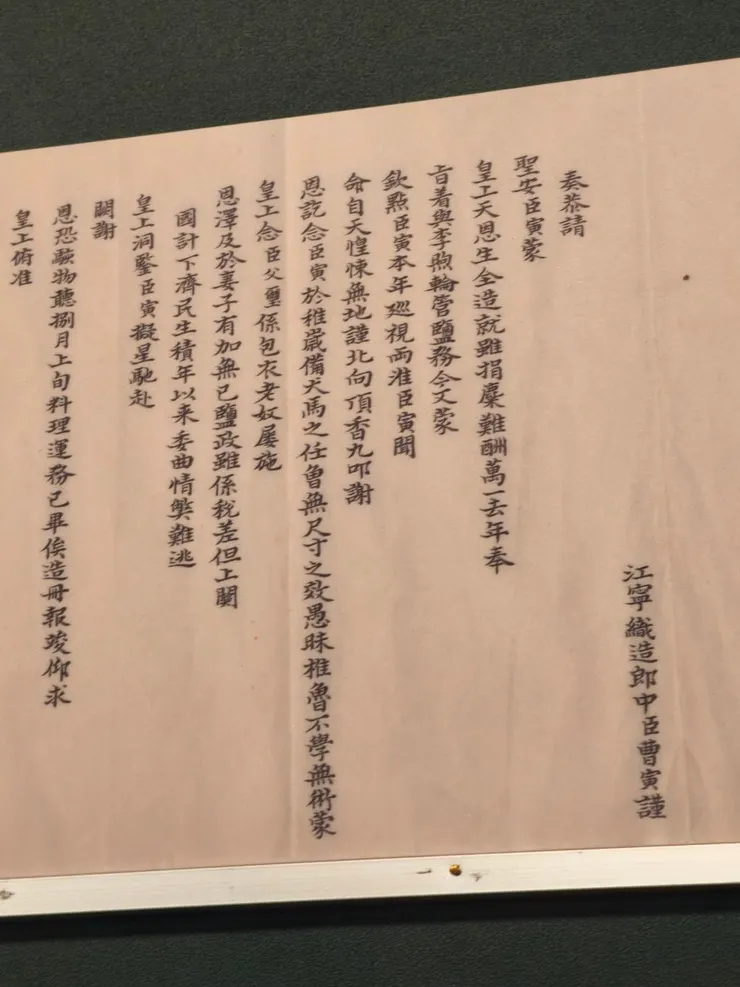 江寧織造郎中臣曹寅謹
奏恭請
聖安臣寅蒙
皇上天恩生全造就雖捐糜難酬萬一去年奉
旨着與李煦輪管鹽務今又蒙
欽點臣寅本年巡視兩淮臣寅聞
命自天惶悚無地謹北向頂香九叩謝
恩訖念臣寅於稚歲備犬馬之任曾無尺寸之效愚昧椎魯不學無術蒙
皇上念臣父璽係包衣老奴屢施
恩澤及於妻子有加無已鹽政雖係稅差但上關
國計下濟民生積年以来委曲情弊難逃
皇上洞鑒臣寅擬星馳赴
闕謝
恩恐駭物聽捌月上旬料理運務已畢俟造冊報竣仰求
皇上俯准